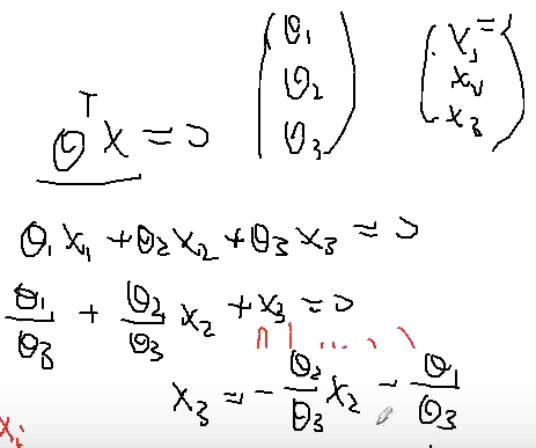 θ₁ x₁ = 1
θᵀx = 0 θ₂ x₂
θ₃ x₃
θ₁x₁ + θ₂x₂ + θ₃x₃ = 0
θ₁/θ₃ + θ₂/θ₃ x₂ + x₃ = 0
x₃ = - θ₂/θ₃ x₂ - θ₁/θ₃
xᵢ